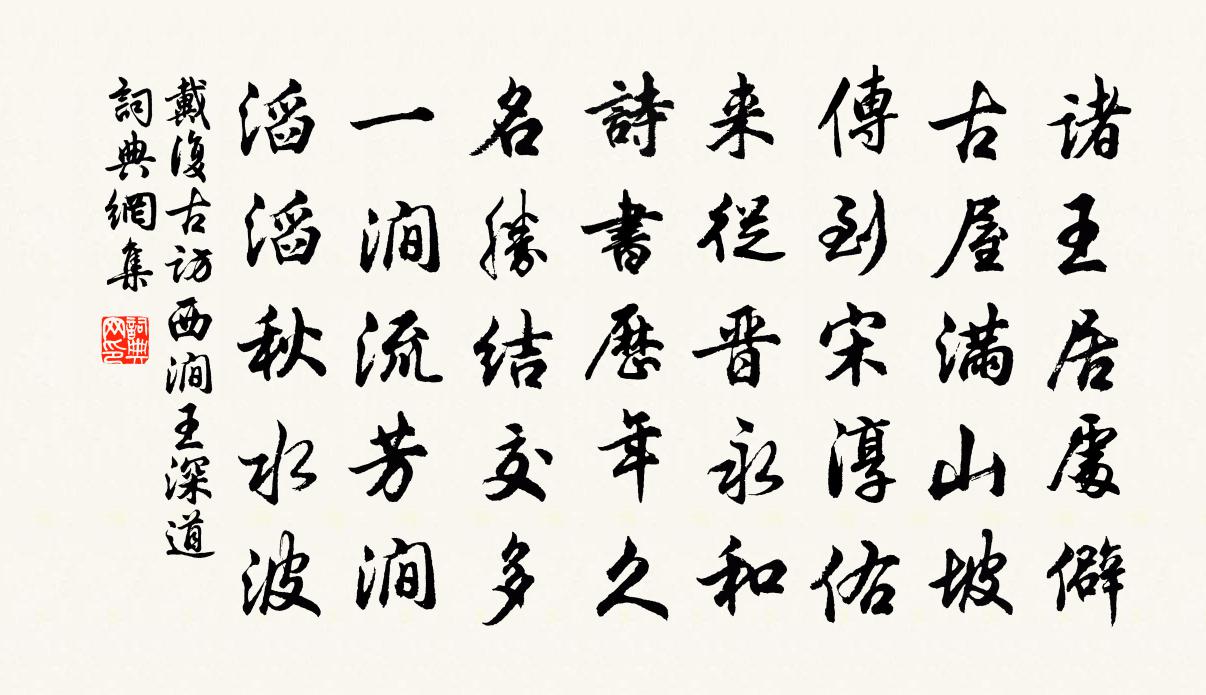 诸王居處僻
古屋满山坡
傳到宋淳佑
来從晋永和
詩書歷年久
名勝结交多
一涧流芳涧
滔滔秋水波
戴復古访西涧王深道
詞典網集
詞典网印